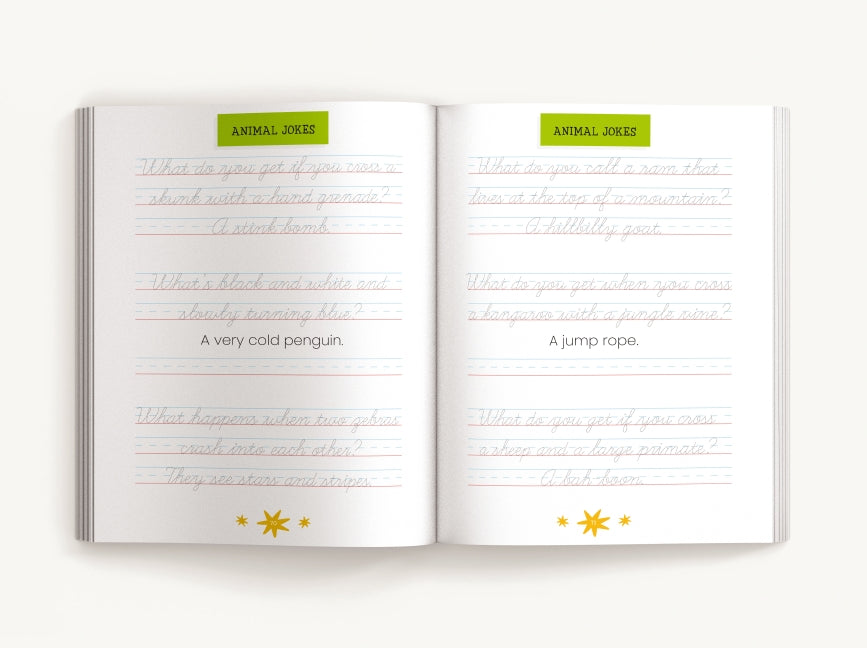 ANIMAL JOKES
What do you get if you cross a
skunk with a hand grenade?
A stink bomb.
What's black and white and
slowly turning blue?
A very cold penguin.
What happens when two zebras
crash into each other?
They see stars and stripes.
70
ANIMAL JOKES
What do you call a ram that
lives at the top of a mountain?
A hillbilly goat.
What do you get when you cross
a kangaroo with a jungle vine?
A jump rope.
What do you get if you cross
a sheep and a large primate?
A bah-boon.